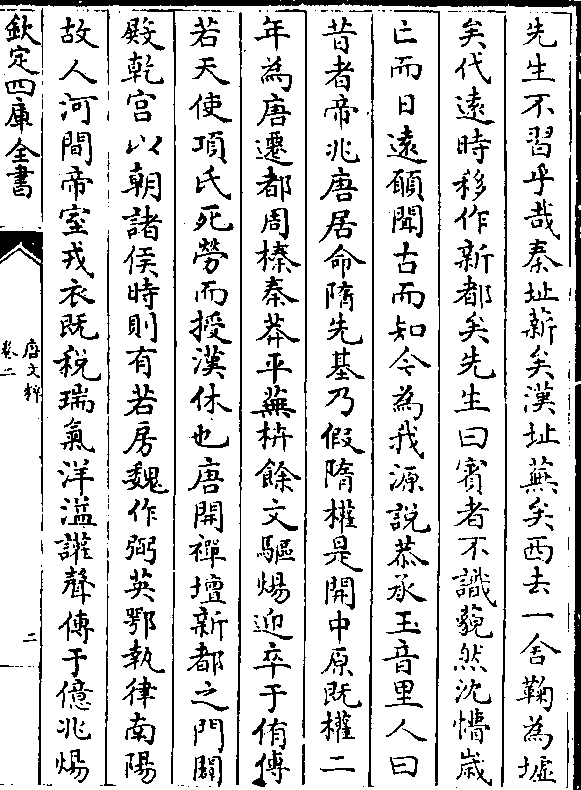 先生不習乎哉秦址薪矣漢址蕪矣西去一舍鞠為墟
矣代遠時移作新都矣先生曰賓者不識藐然沈懵歲
亡而日遠願聞古而知今為我源說恭承玉音里人曰
昔者帝兆唐居命隋先基乃假隋權是開中原既權二
年為唐遷都周榛秦莽平蕪枿餘文驅煬迎卒于侑傳
若天使項氏死勞而授漢休也唐開禪壇新都之門闢
殿乾宫以朝諸侯時則有若房魏作弼英鄂執律南陽
故人河間帝室戎衣既稅瑞氣洋溢讙聲傳于億兆煬
欽定四庫全書
唐文粹
卷二
二